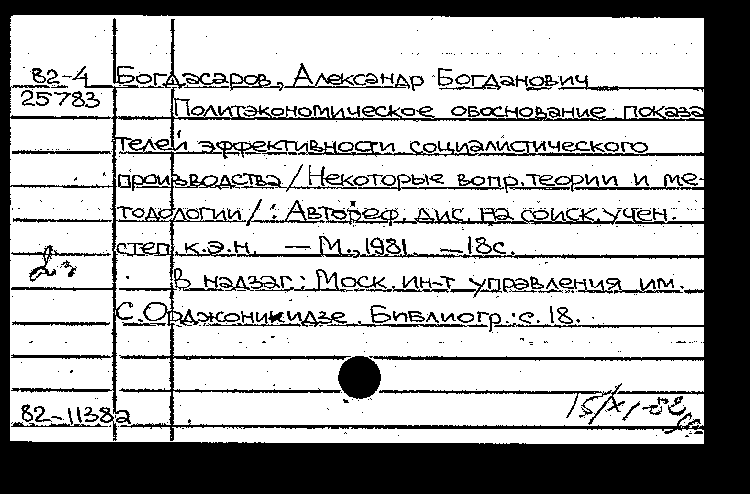 82-4 Богдасаров, Александр Богданович
25783 Политэкономическое обоснование показа
телей эффективности социалистического
производства/Некоторые вопр. теории и ме-
тодологии/: Автореф. дис. на соиск. учен.
степ. к.э.н. — М., 1981. — 18с.
В надзаг.: Моск. ин-т управления им.
С. Орджоникидзе. Библиогр.: с. 18.
82-11382 15/XI-82